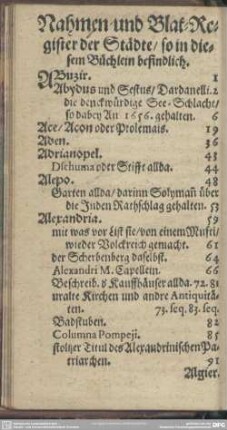 Nahmen und Blat-Re-
gister der Städte / so in die-
sem Büchlein befindlich.
ABuzir. 1
Abydus und Sestus / Dardanelli. 2
die denckwürdige See-Schlacht /
so dabey An 1656. gehalten. 6
Ace / Acon oder Ptolemais. 19
Aden. 36
Adrianopel. 43
Dschuma oder Stifft allda. 44
Alepo. 48
Garten allda / darinn Solyman über
die Juden Rathschlag gehalten. 53
Alexandria. 59
mit was vor List sie / von einem Mufti /
wieder Volckreich gemacht. 61
der Scherbenberg daselbst. 64
Alexandri M. Capellein. 66
Beschreib. d Kauffhäuser allda. 72. 81
uralte Kirchen und andre Antiquitä-
ten. 73. seq. 83. seq.
Badstuben. 82
Columna Pompeji. 85
stoltzer Titul des Alexandrinischen Pa-
triarchen. 91
Algier.